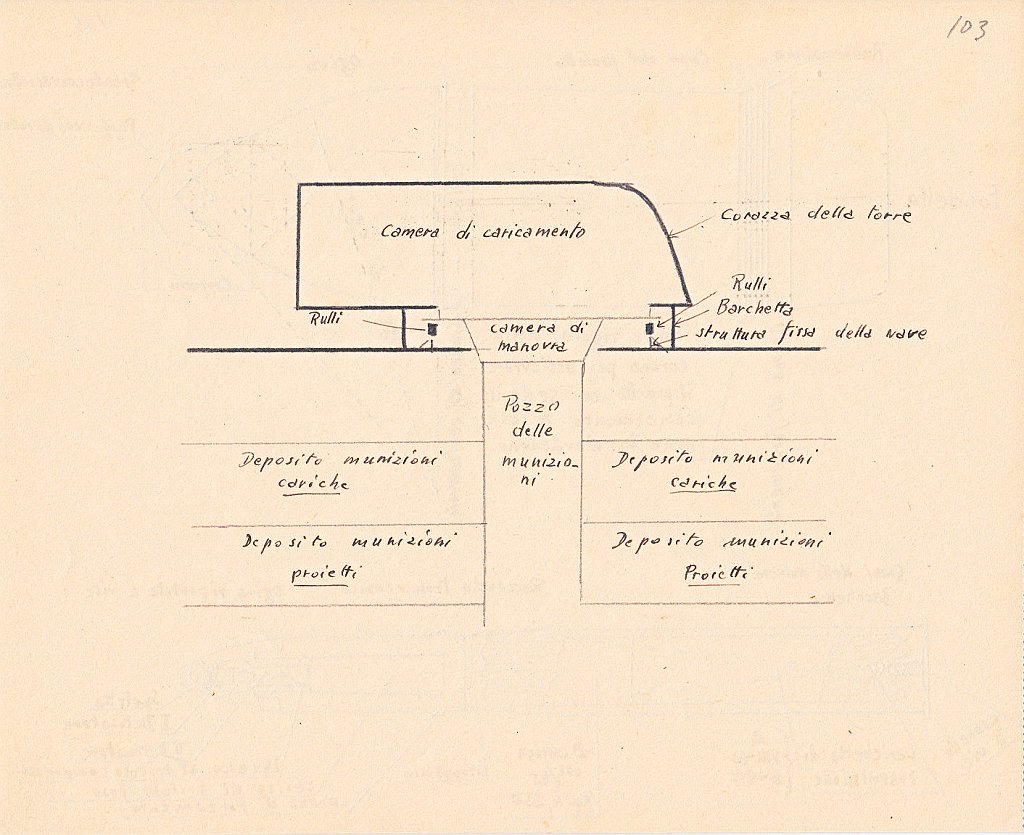 103
Corazza della torre
Camera di caricamento
Rulli
Barchetta
Rulli
camera di
manovra
struttura fissa della nave
Pozzo
delle
munizio-
ni
Deposito munizioni
cariche
Deposito munizioni
cariche
Deposito munizioni
proietti
Deposito munizioni
Proietti